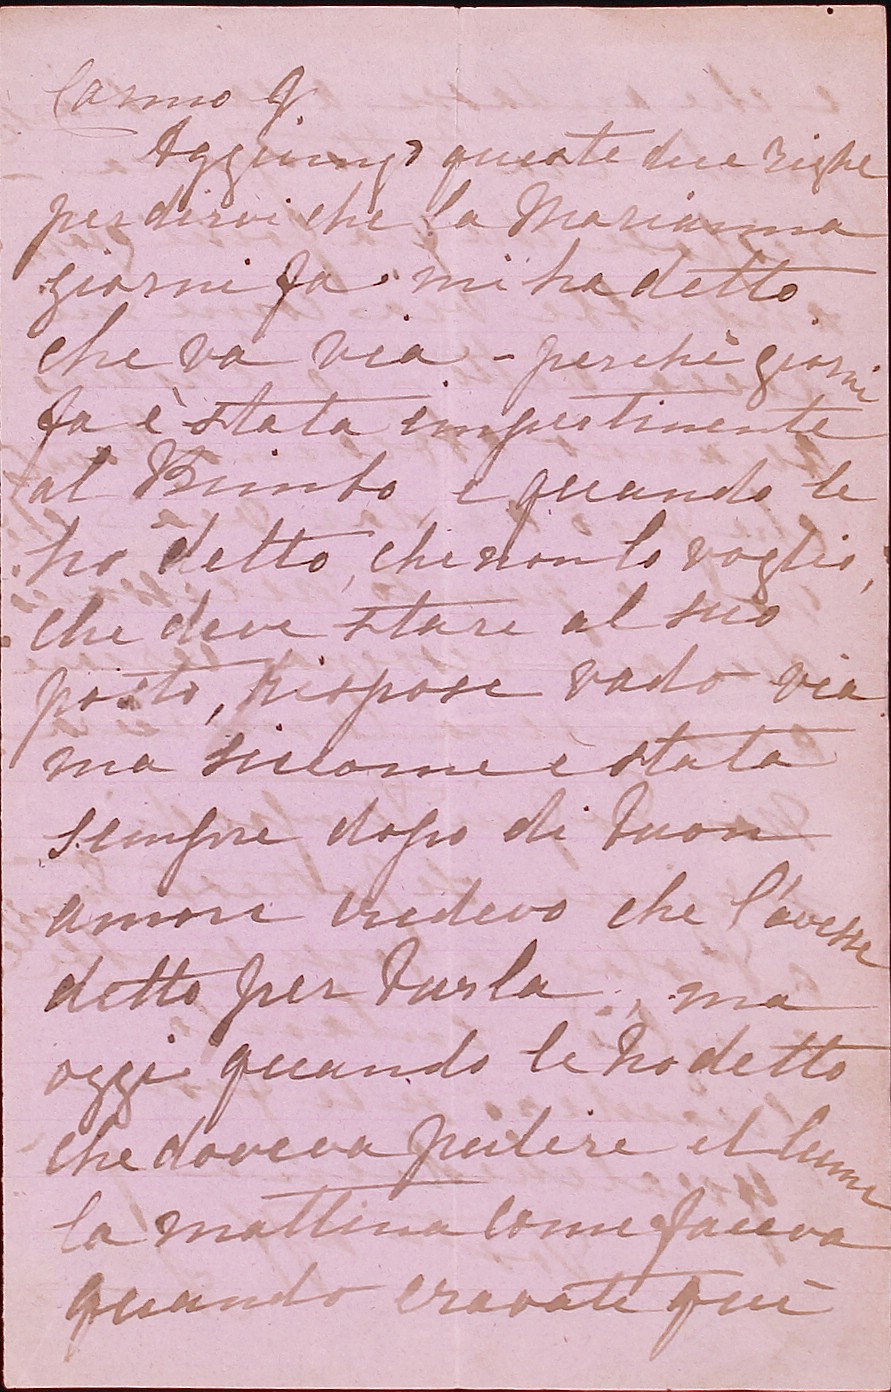 Carmo G
Aggiungo queste due righe
per dirvi che la Marianna
giorni fa mi ha detto
che va via - perchè giorni
fa è stata impertinente
al Bimbo, e quando le
ho detto, che non lo voglio,
che deve stare al suo
posto, rispose vado via
ma siccome e stata
sempre dopo di buon
amore credevo che l'avesse
detto per burla, ma
oggi quando le ho detto
che doveva pulire il lume
la mattina come faceva
quando eravate quì